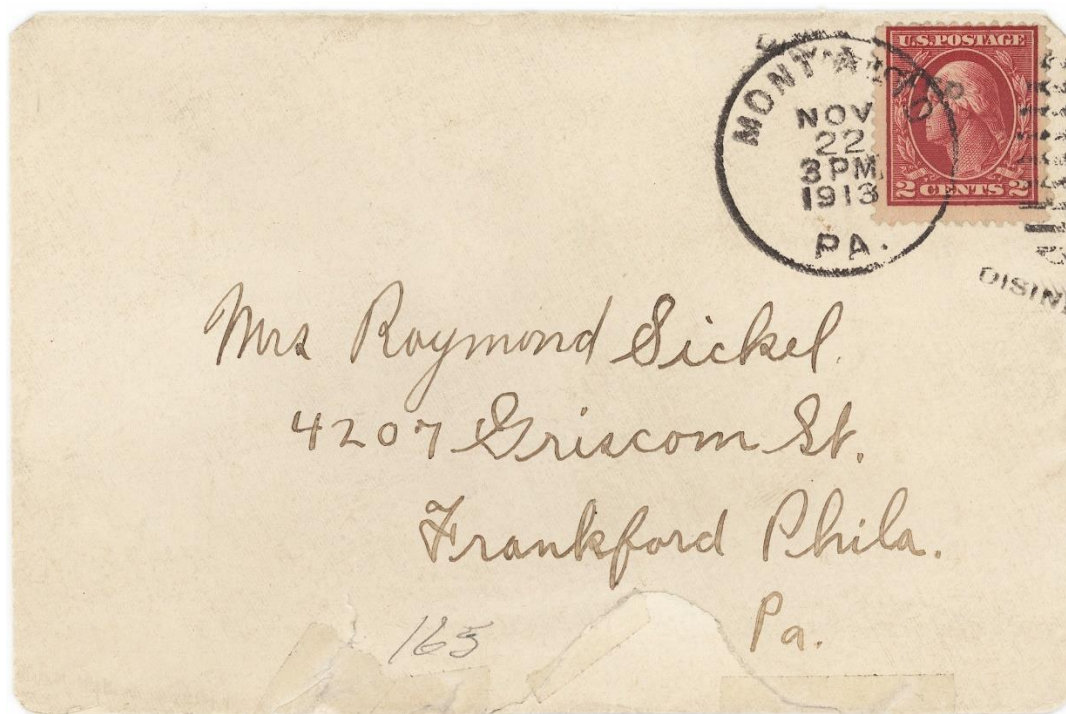 U.S. POSTAGE
2 CENTS 2
NOV
22
3 PM
1913
PA.
Mrs Raymond Sickel.
4207 Griscom St.
Frankford Phila.
Pa.
165